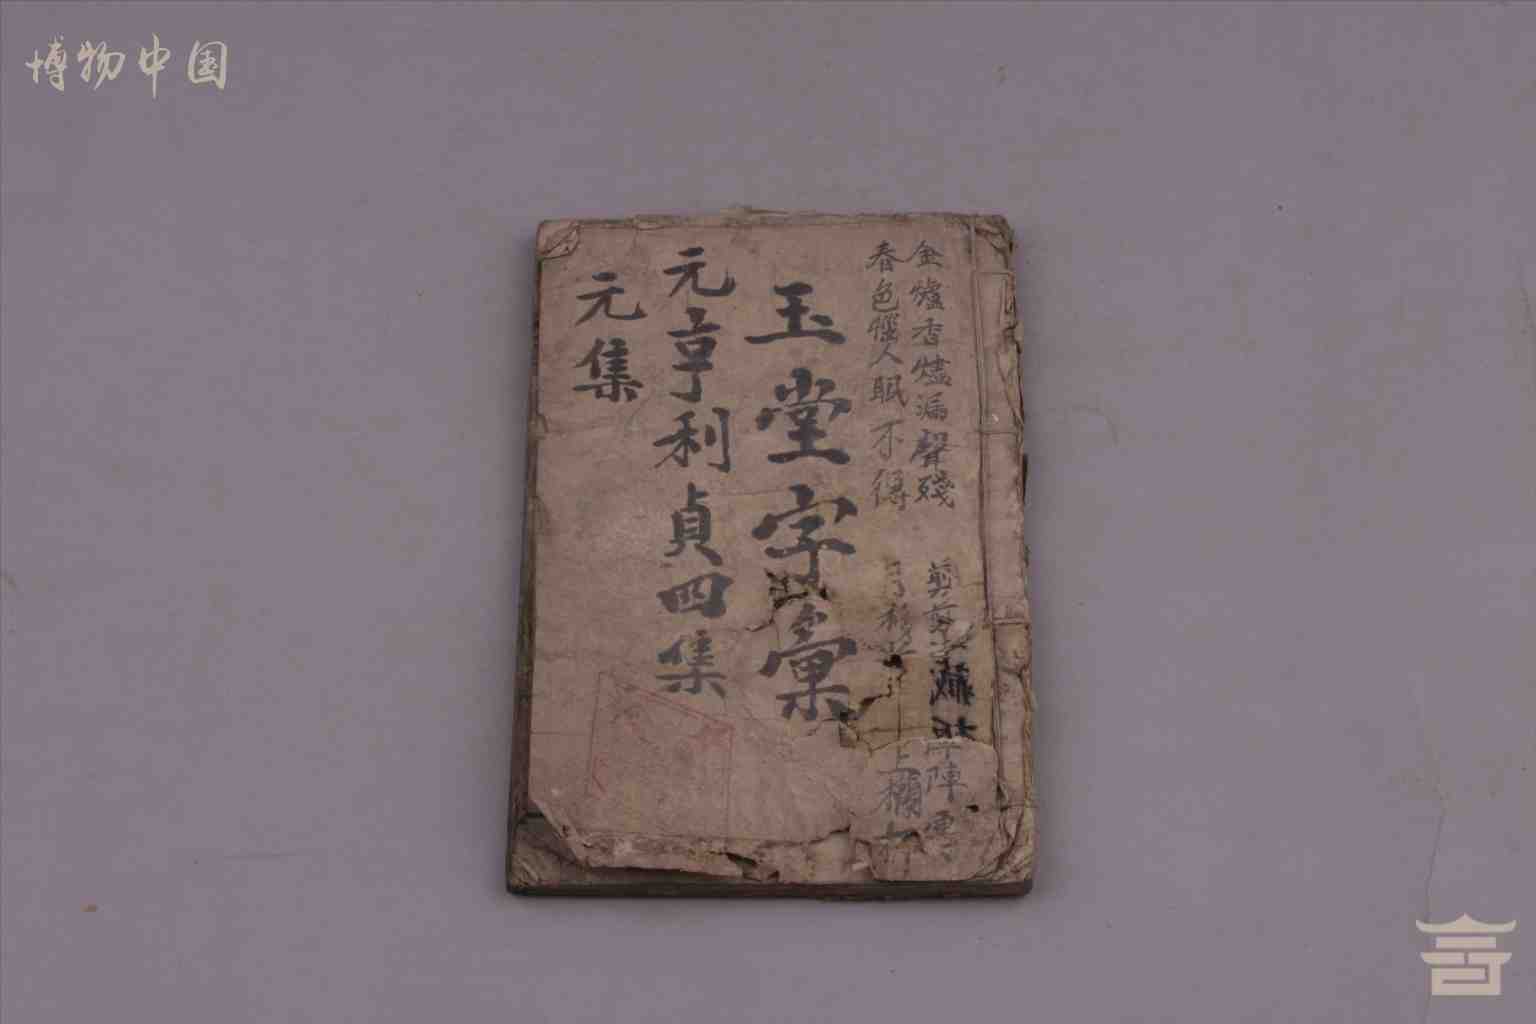 博物中国
金爐香燼漏聲殘 剪剪 陣陣
春色惱人眠不得 移 上欄
藏板
玉堂字彙
元亨利貞四集
元集